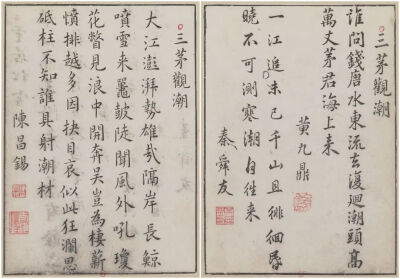 三茅觀潮
誰問錢唐水東流去復迴潮頭高
萬丈茅君海上来
黄九鼎
一江追未已千山且徘徊昏
曉不可測寒潮自往来
秦舜友
三茅觀潮
大江澎湃勢雄哉隔岸長鯨
噴雪来鼉鼓陡聞風外吼瓊
花瞥見浪中開奔吴豈為棲薪
憤排越多因抉目哀似此狂瀾思
砥柱不知誰具射潮材
陳昌錫